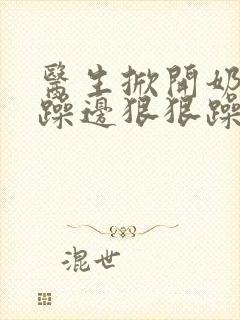 醫生掀開奶
躁邊狠狠躁
混世